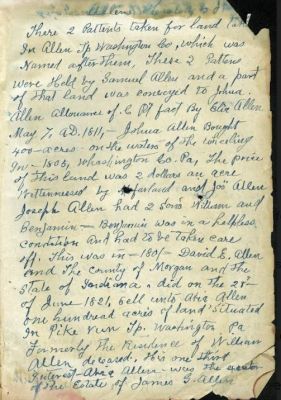 There 2 Patents taken for land
In Allen Tp. Washington Co, which was
Named after them, These 2 Patens
Were Held by Samuel Allen and a part
of that land was conveyed to Joshua.
Allen Allowance of 6 Pr fact By Eliz Allen.
May 7, AD. 1811,- Joshua Allen Bought
400-acres- on the waters of the
In- 1805, Whashington Co. Pa, The price
of This land was 2 dollars an acre
Wittennessed by and Jos Allen
Joseph Allen had 2 sons William and
Benjamin- Benjamin was in a helpless
condition and had to be taken care
off. This was in - 180 - David E. Allen
and The County of Morgan and the
State of Indiana, did on the 25-
of June 1821, sell unto Abia Allen
one hundread acres of land situated
In Pike run Tp. Washington Pa
Formerly the Residence of William
Allen deceased, this one third
Interest - Abia Allen - was the
of the Estate of James G. Allen